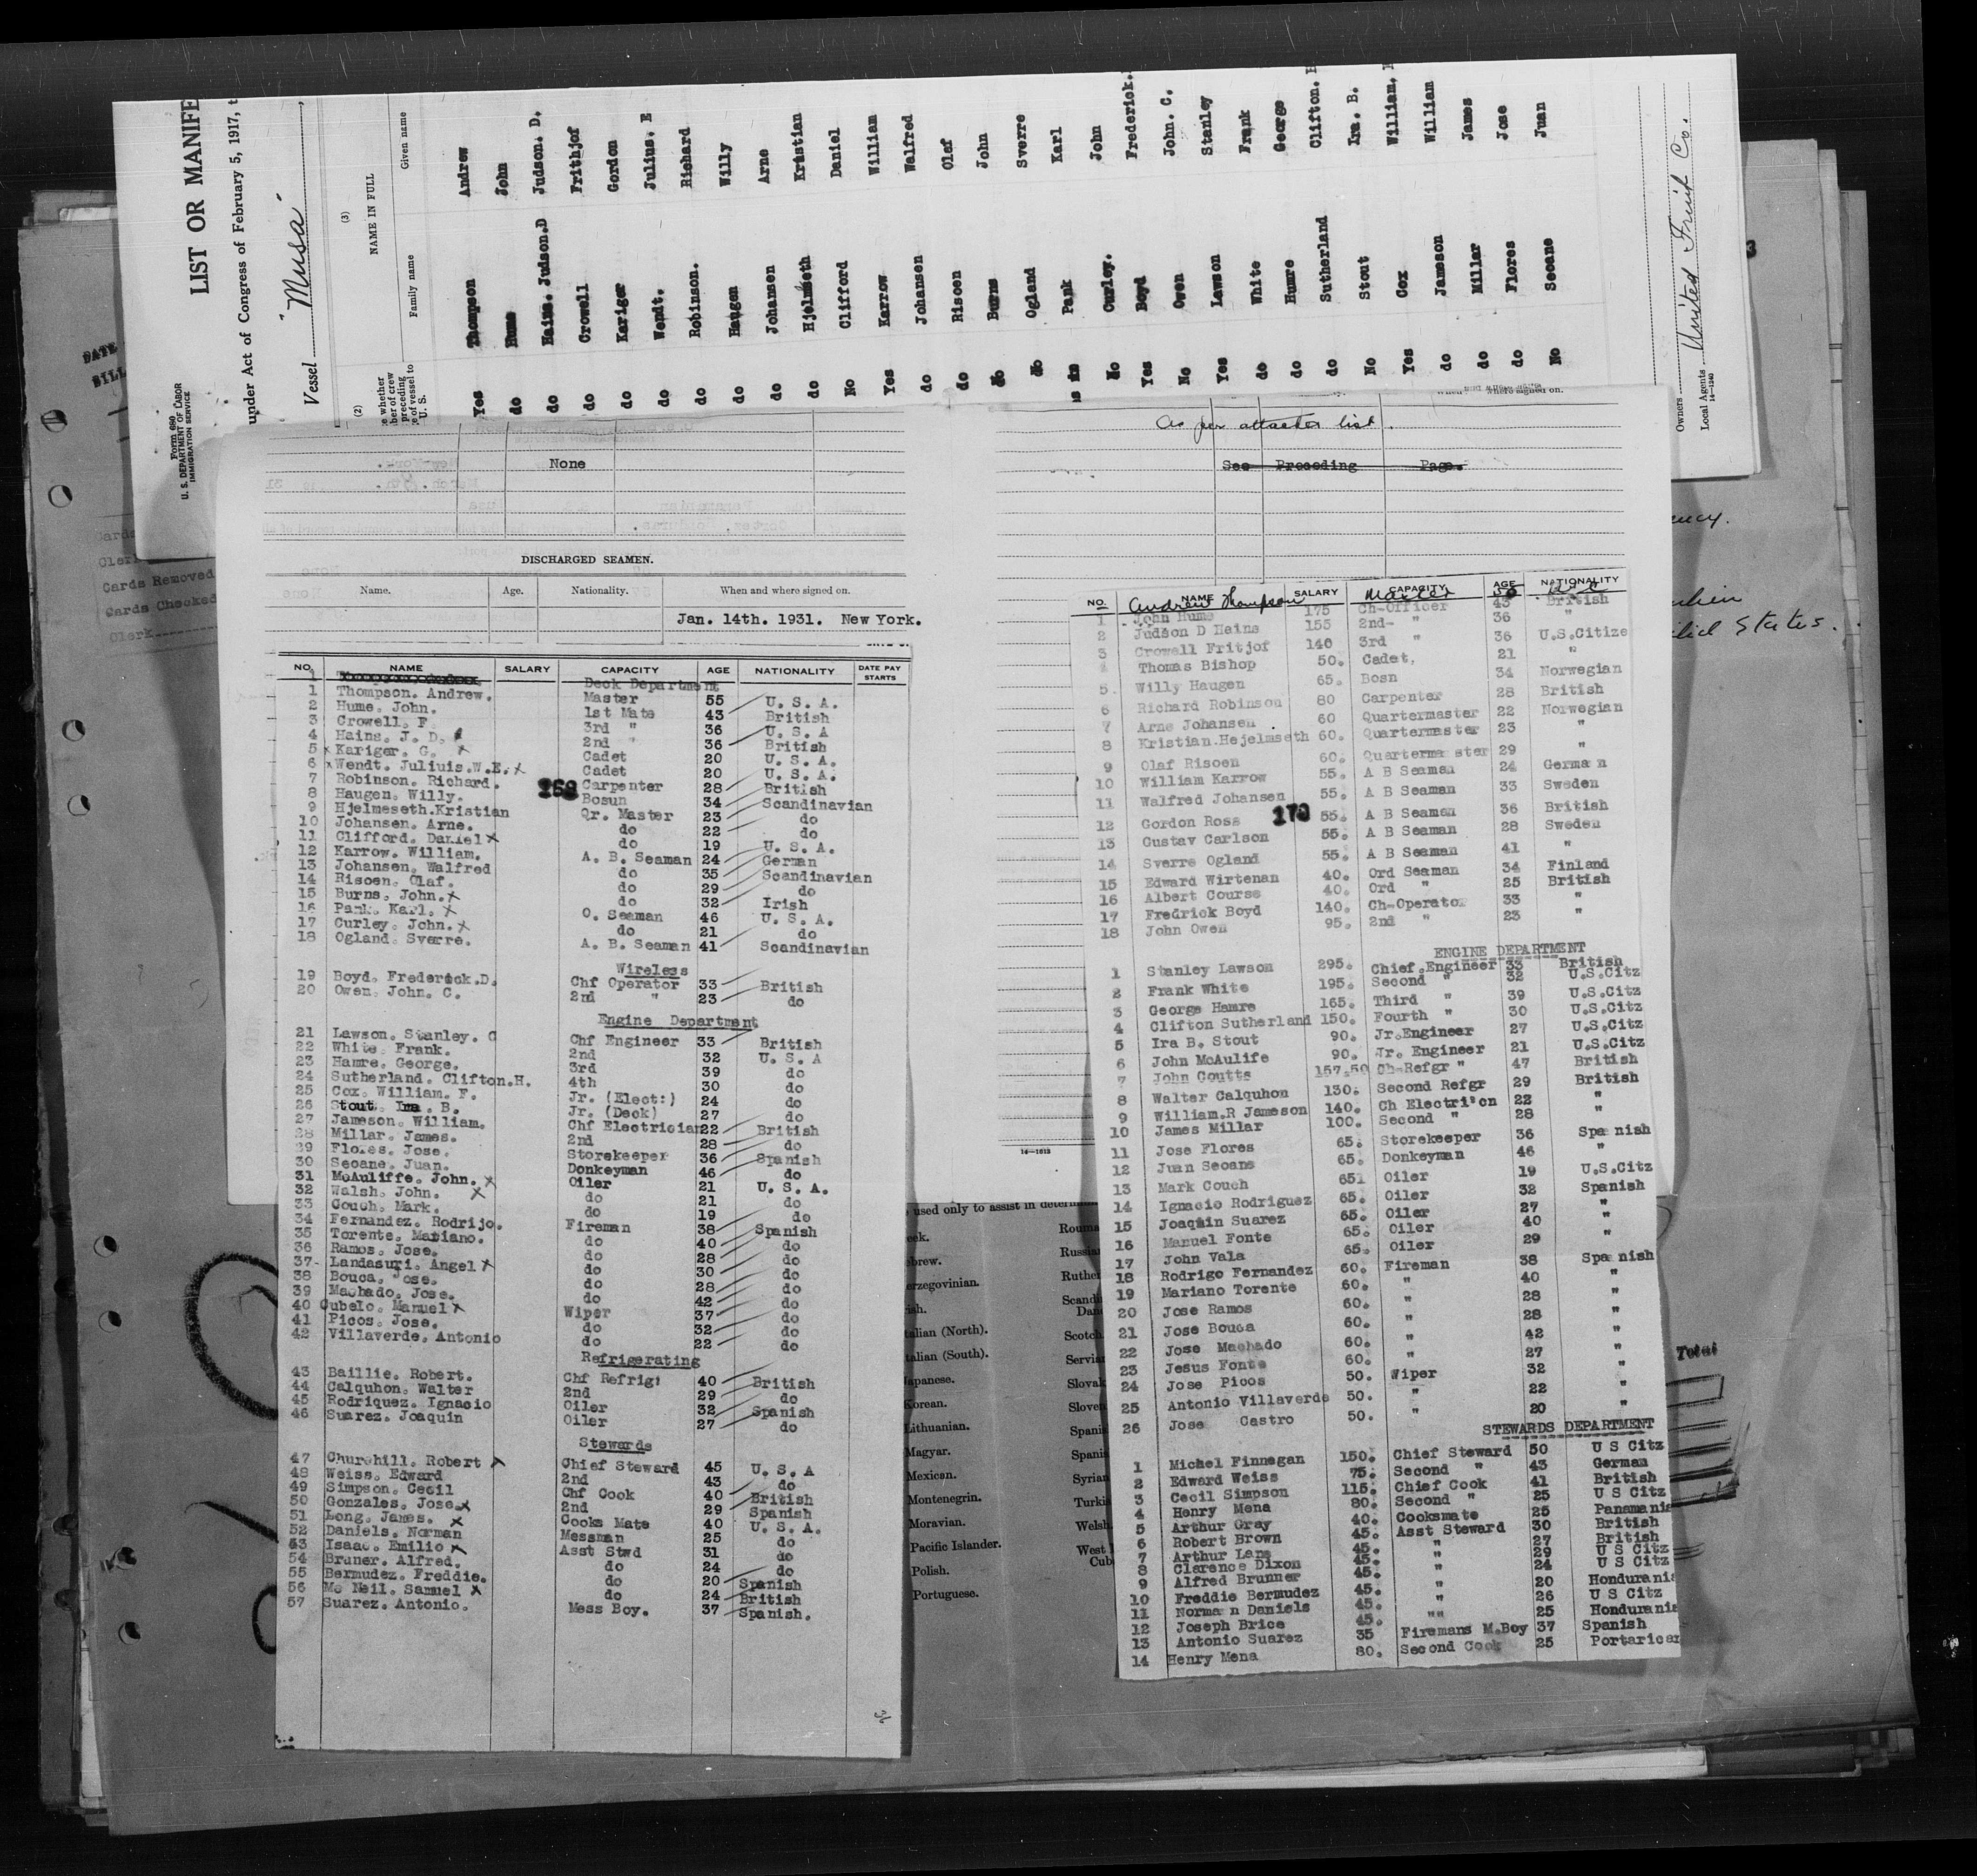 Form 680
U. S. DEPARTMENT OF LABOR
IMMIGRATION SERVICE
LIST OR MANIFE
under Act of Congress of February 5, 1917, t
Vessel "Musa"
(2)
(3)
NAME IN FULL
Family name
Given name
Yes Thompson Andrew
do Hume John
do Hains. Judson.D Judson. D.
do Crowell Frithjof
do Kariger Gordon
do Wendt. Julius. E
do Robinson. Richard
do Haugen Willy
do Johansen Arne
do Hjelmseth Kristian
No Clifford Daniel
Yes Karrow William
do Johansen Walfred
do Risoen Olaf
do Burns John
do Ogland Sverre
Pank Karl
No Curley. John
Yes Boyd Frederick.
No Owen John. C.
Yes Lawson Stanley
do White Frank
do Humre George
do Sutherland Clifton.
No Stout Ira. B.
Yes Cox William,
do Jameson William
do Millar James
do Flores Jose
No Seoane Juan
Owners
Local Agents United Fruit Co.
14-1240
None
DISCHARGED SEAMEN.
Name. Age. Nationality. When and where signed on.
Jan. 14th. 1931. New York.
NO. NAME SALARY CAPACITY AGE NATIONALITY DATE PAY STARTS
Deck Department
1 Thompson. Andrew. Master 55 U. S. A.
2 Hume. John. 1st Mate 43 British
3 Crowell. F. 3rd " 36 U. S. A
4 Hains. J. D. 2nd " 36 British
5 x Kariger. G. x Cadet 20 U. S. A.
6 x Wendt. Juliuis.W.E. x Cadet 20 U. S. A.
7 Robinson. Richard. Carpenter 28 British
268
8 Haugen. Willy. Bosun 34 Scandinavian
9 Hjelmeseth.Kristian Qr. Master 23 do
10 Johansen. Arne. do 22 do
11 Clifford. Daniel x do 19 U. S. A.
12 Karrow. William. A. B. Seaman 24 German
13 Johansen. Walfred do 35 Scandinavian
14 Risoen. Olaf. do 29 do
15 Burns. John. x do 32 Irish
16 Pank. Karl. x O. Seaman 46 U. S. A.
17 Curley. John. x do 21 do
18 Ogland. Sverre. A. B. Seaman 41 Scandinavian
Wireless
19 Boyd. Frederick.D. Chf Operator 33 British
20 Owen. John. C. 2nd " 23 do
Engine Department
21 Lawson. Stanley. G Chf Engineer 33 British
22 White. Frank. 2nd 32 U. S. A
23 Hamre. George. 3rd 39 do
24 Sutherland. Clifton.H. 4th 30 do
25 Cox. William. F. Jr. (Elect:) 24 do
26 Stout. Ira. B. Jr. (Deck) 27 do
27 Jameson. William. Chf Electrician 22 British
28 Millar. James. 2nd 28 do
29 Flores. Jose. Storekeeper 36 Spanish
30 Seoane. Juan. Donkeyman 46 do
31 McAuliffe. John. x Oiler 21 U. S. A.
32 Walsh. John. x do 21 do
33 Couch. Mark. do 19 do
34 Fernandez. Rodrijo. Fireman 38 Spanish
35 Torente. Mariano. do 40 do
36 Ramos. Jose. do 28 do
37 Landasuri. Angel x do 30 do
38 Bouca. Jose. do 28 do
39 Machado. Jose. do 42 do
40 Cubelo. Manuel x Wiper 37 do
41 Picos. Jose. do 32 do
42 Villaverde. Antonio do 22 do
Refrigerating
43 Baillie. Robert. Chf Refrigi 40 British
44 Calquhon. Walter 2nd 29 do
45 Rodriquez. Ignacio Oiler 32 Spanish
46 Suarez. Joaquin Oiler 27 do
Stewards
47 Churchill. Robert x Chief Steward 45 U. S. A
48 Weiss. Edward 2nd 43 do
49 Simpson. Cecil Chf Cook 40 British
50 Gonzales. Jose x 2nd 29 Spanish
51 Long. James. x Cooks Mate 40 U. S. A.
52 Daniels. Norman Messman 25 do
53 Isaac. Emilio x Asst Stwd 31 do
54 Bruner. Alfred. do 24 do
55 Bermudez. Freddie. do 20 Spanish
56 Mc Neil. Samuel x do 24 British
57 Suarez. Antonio. Mess Boy. 37 Spanish.
As per attached list.
See Preceding Page.
NO. NAME SALARY CAPACITY AGE NATIONALITY
Andrew Thompson Master
1 John Hume 175 Ch-Officer 43 British
2 Judson D Hains 155 2nd- " 36 "
3 Crowell Fritjof 140 3rd " 36 U.S.Citize
4 Thomas Bishop 50. Cadet, 21 "
5. Willy Haugen 65. Bosn 34 Norwegian
6 Richard Robinson 80 Carpenter 28 British
7 Arne Johansen 60 Quartermaster 22 Norwegian
8 Kristian.Hejelmseth 60. Quartermaster 23 "
9 Olaf Risoen 60. Quartermaster 29 "
10 William Karrow 55. A B Seaman 24 German
11 Walfred Johansen 55. A B Seaman 33 Sweden
170
12 Gordon Ross 55. A B Seaman 36 British
13 Gustav Carlson 55. A B Seaman 28 Sweden
14 Sverre Ogland 55. A B Seaman 41 "
15 Edward Wirtenan 40. Ord Seaman 34 Finland
16 Albert Course 40. Ord " 25 British
17 Fredrick Boyd 140. Ch-Operator 33 "
18 John Owen 95. 2nd " 23 "
ENGINE DEPARTMENT
1 Stanley Lawson 295. Chief.Engineer 33 British
2 Frank White 195. Second " 32 U.S.Citz
3 George Hamre 165. Third " 39 U.S.Citz
4 Clifton Sutherland 150. Fourth " 30 U.S.Citz
5 Ira B. Stout 90. Jr.Engineer 27 U.S.Citz
6 John McAulife 90. Jr. Engineer 21 U.S.Citz
7 John Coutts 157.50 Ch-Refgr " 47 British
8 Walter Calquhon 130. Second Refgr 29 British
9 William.R Jameson 140. Ch Electri'cn 22 "
10 James Millar 100. Second " 28 "
11 Jose Flores 65. Storekeeper 36 Spanish
12 Juan Seoans 65. Donkeyman 46 "
13 Mark Couch 65. Oiler 19 U.S.Citz
14 Ignacio Rodriguez 65. Oiler 32 Spanish
15 Joaquin Suarez 65. Oiler 27 "
16 Manuel Fonte 65. Oiler 40 "
17 John Vala 65. Oiler 29 "
18 Rodrigo Fernandez 60. Fireman 38 Spanish
19 Mariano Torente 60. " 40 "
20 Jose Ramos 60. " 28 "
21 Jose Bouca 60. " 28 "
22 Jose Machado 60. " 42 "
23 Jesus Fonte 60. " 27 "
24 Jose Picos 50. Wiper 32 "
25 Antonio Villaverde 50. " 22 "
26 Jose Castro 50. " 20 "
STEWARDS DEPARTMENT
1 Michel Finnegan 150. Chief Steward 50 U S Citz
2 Edward Weiss 75. Second " 43 German
3 Cecil Simpson 115. Chief Cook 41 British
4 Henry Mena 80. Second " 25 U S Citz
5 Arthur Gray 40. Cooksmate 25 Panamania
6 Robert Brown 45. Asst Steward 30 British
7 Arthur Lane 45. " 27 British
8 Clarence Dixon 45. " 29 U S Citz
9 Alfred Brunner 45. " 24 U S Citz
10 Freddie Bermudez 45. " 20 Hondurania
11 Norman Daniels 45. " 26 U S Citz
12 Joseph Brice 45. "" 25 Hondurania
13 Antonio Suarez 35 Firemans M.Boy 37 Spanish
14 Henry Mena 80. Second Cook 25 Portarican
16-1612
used only to assist in determin
erzegovinian.
talian (North).
talian (South).
Japanese.
Korean.
Lithuanian.
Magyar.
Mexican.
Montenegrin.
Moravian.
Pacific Islander.
Polish.
Portuguese.
Rouma
Russia
Ruthe
Scand
Scotch
Servia
Slovak
Sloven
Spani
Spanis
Syrian
Turki
Welsh
West
Cub
DATE
BILL
Cards Removed
Cards Checked
Clerk
States.
Total